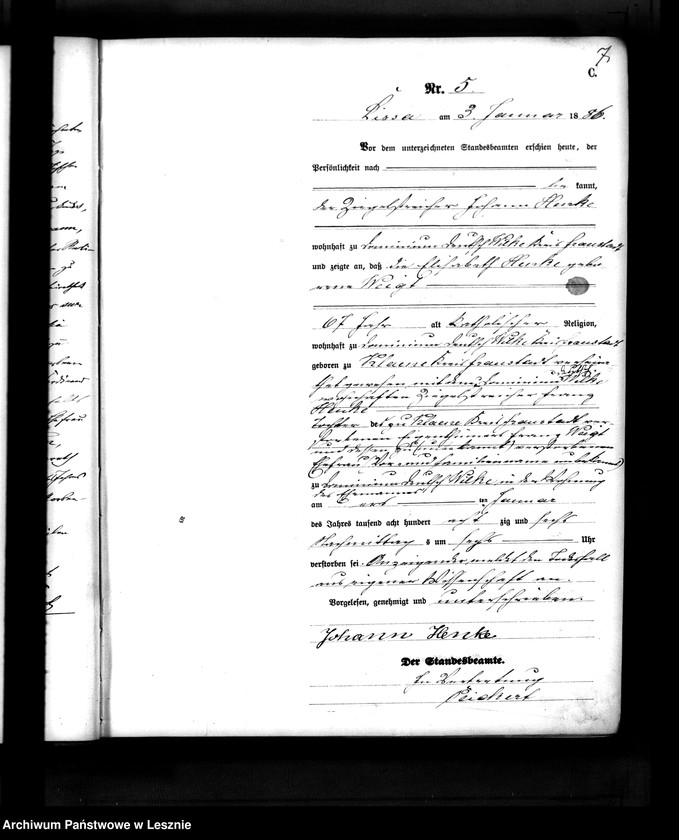 7
C.
Nr. 5.
Lissa am 3 Januar 1886.
Vor dem unterzeichneten Standesbeamten erschien heute, der
Persönlichkeit nach
be kannt,
der Ziegelstreicher Johann Henke
wohnhaft zu Dominium Deutsch Wilke Kreis Fraustadt
und zeigte an, daß die Elisabeth Henke gebo
rene Weigt
67 Jahr alt katholischer Religion,
wohnhaft zu Dominium Deutsch Wilke Kreis Fraustadt
geboren zu Kreis Fraustadt verhei
rathet gewesen mit dem zu Dominium Deutsch Wilke
wohnhaften Ziegelstreicher Franz
Henke
Tochter des zu Kreis Fraustadt ver
storbenen Eigenthümers Franz Weigt
und dessen zu (unbekannt) verstorbenen
Ehefrau (Vor und Familienname unbekannt)
zu Dominium Deutsch Wilke in der Wohnung
des Ehemannes
am ten Januar
des Jahres tausend acht hundert acht zig und sechs
Nachmittag s um sechs Uhr
verstorben sei. Anzeigender meldet den Todesfall
aus eigener Wissenschaft an.
Vorgelesen, genehmigt und unterschrieben.
Johann Henke
Der Standesbeamte.
In Vertretung
Archiwum Państwowe w Lesznie